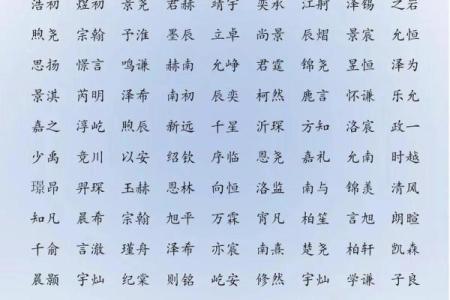 浩初 煜初 景尧 君赫 靖宇 奕承 江舸 泽锡 之岩
煦尧 宗翰 予淮 墨辰 立卓 尚景 辰熠 景宸 允恒
思扬 憬言 鸣谦 赫南 允峥 君霆 锦尧 星恒 泽为
景淇 芮明 泽希 南初 辰奕 柯然 鹿言 怀谦 乐允
嘉之 淳屹 煦辰 新远 千星 沂琛 方知 洛宸 政一
少禹 竞川 以安 绍钦 序临 恩尧 嘉礼 允南 时越
璟昂 羿琛 玉赫 恩林 向恒 洛监 南与 锦美 清风
知凡 晨希 宗翰 旭平 万霖 宵凡 柏笙 言旭 朗暄
千俞 言澈 瑾舟 泽希 亦宸 南熹 楚尧 柏轩 凯森
晨颢 宇灿 纪棠 则铭 屹安 修然 宇灿 学谦 子良